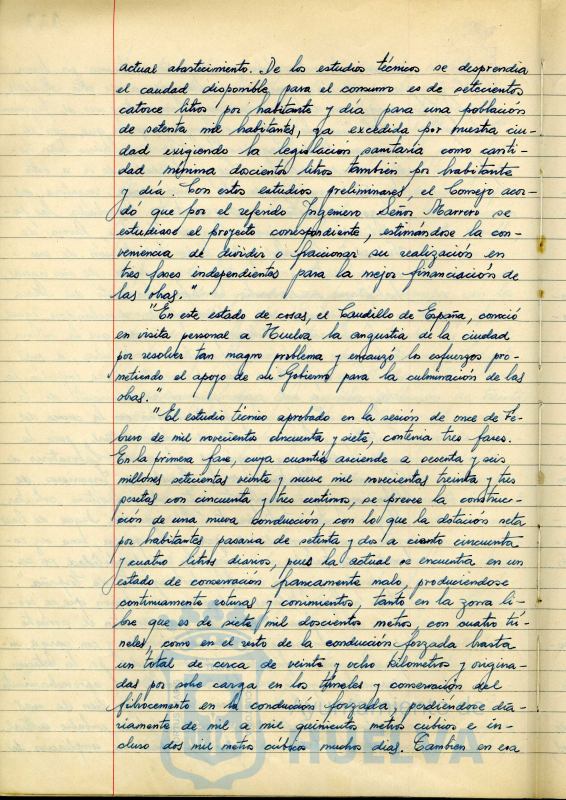 actual abastecimiento. De los estudios técnicos se desprendia
el caudal disponible para el consumo es de setecientos
catorce litros por habitante y día para una población
de setenta mil habitantes, ya excedida por nuestra ciu-
dad exigiendo la legislación sanitaria como canti-
dad mínima doscientos litros también por habitante
y dia. Con estos estudios preliminares, el Consejo acor-
dó que por el referido Ingeniero Señor Marrero se
estudiase el proyecto correspondiente, estimándose la con-
veniencia de dividir o fraccionar su realización en
tres fases independientes para la mejor financiación de
las obras."
"En este estado de cosas, el Caudillo de España, conoció
en visita personal a Huelva la angustia de la ciudad
por resolver tan magro problema y encauzó los esfuerzos pro-
metiendo el apoyo de su Gobierno para la culminación de las
obras."
"El estudio técnico aprobado en la sesión de once de Fe-
brero de mil novecientos cincuenta y siete, contenia tres fases.
En la primera fase, cuya cuantía asciende a sesenta y seis
millones setecientas veinte y nueve mil novecientas treinta y tres
pesetas con cincuenta y tres centimos, se prevee la construc-
ción de una nueva conducción, con lo que la dotación neta
por habitantes pasaria de setenta y dos a ciento cincuenta
y cuatro litros diarios, pues la actual se encuentra en un
estado de conservación francamente malo, produciendose
continuamente roturas y corrimientos, tanto en la zona li-
bre que es de siete mil doscientos metros, con cuatro tú-
neles, como en el resto de la conducción forzada hasta
un total de cerca de veinte y ocho kilometros y origina-
das por sobre carga en los túneles y conservación del
fibrocemento en la conducción forzada, perdiéndose dia-
riamente de mil a mil quinientos metros cúbicos e in-
cluso dos mil metros cúbicos muchos dias. Tambien en esa
HUELVA